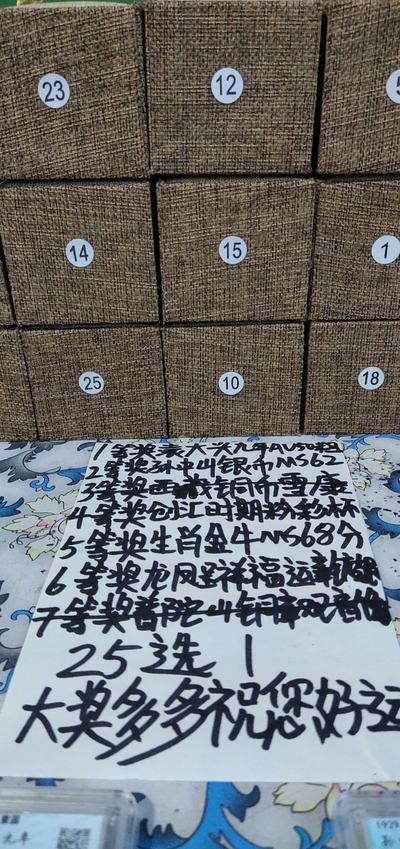 23 12 5
14 15 1
25 10 18
1等奖袁大头九年AU50
2等奖孙中山银币MS62
3等奖西藏铜币雪康
4等奖包汇时期粉彩杯
5等奖生肖金牛MS68分
6等奖龙凤呈祥福运
7等奖普陀山铜章观音像
25选1
大奖多多祝您好运
元年
1929
孙